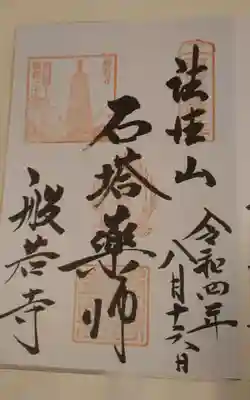 法性山
令和四年
八月十六日
石塔薬師
般若寺